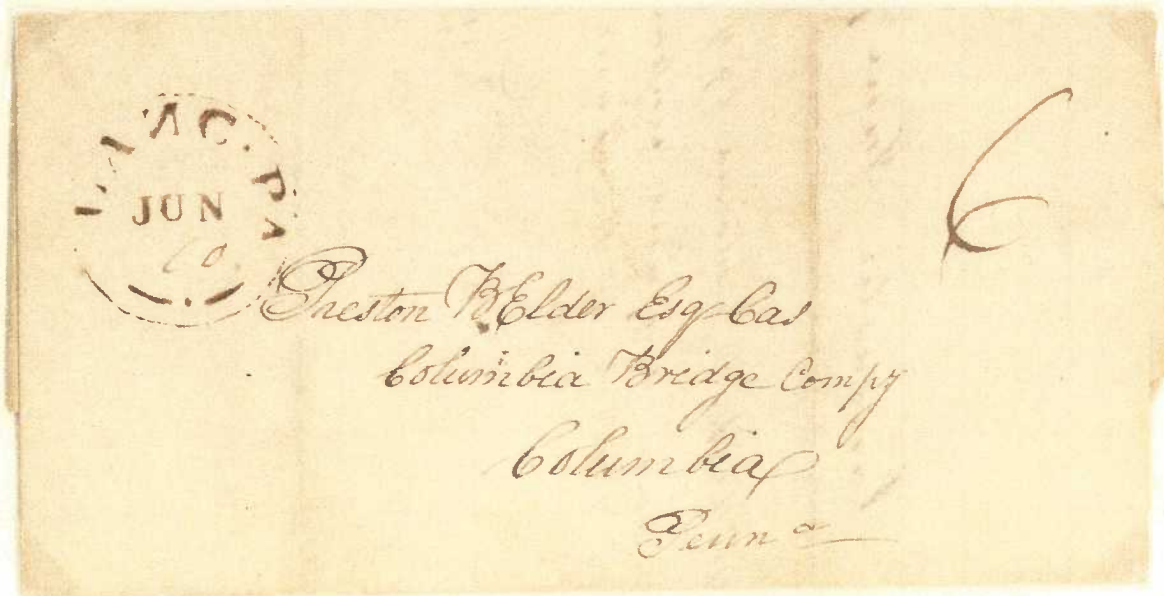 LANC. PA
JUN
10
6
Preston B Elder Esq Cas
Columbia Bridge Compy
Columbia
Penna